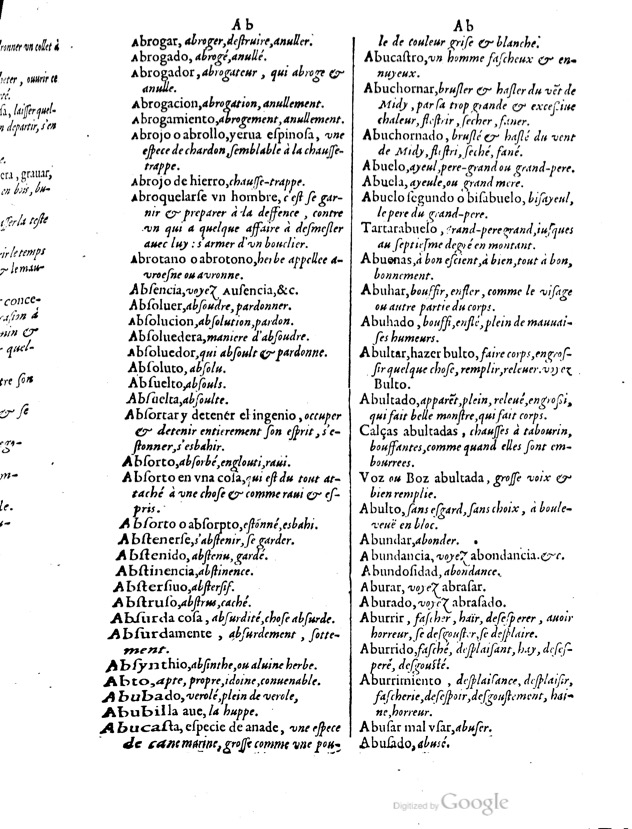 Ab
Abrogar, abroger, destruire, anuller.
Abrogado, abrogé, anullé.
Abrogador, abrogateur, qui abroge &
anulle.
Abrogacion, abrogation, anullement.
Abrogamiento, abrogement, anullement.
Abrojo o abrollo, yerua espinosa, vne
espece de chardon, semblable à la chausse-
trappe.
Abrojo de hierro, chausse-trappe.
Abroquelarse vn hombre, c'est se gar-
nir & preparer à la deffence, contre
vn qui a quelque affaire à desmesler
auec luy: s'armer d'vn bouclier.
Abrotano o abrotono, herbe appellee a-
vroesne ou avronne.
Absencia, voyez Ausencia, &c.
Absoluer, absoudre, pardonner.
Absolucion, absolution, pardon.
Absoluedera, maniere d'absoudre.
Absoluedor, qui absoult & pardonne.
Absoluto, absolu.
Absuelto, absouls.
Absuelta, absoulte.
Absortar y detener el ingenio, occuper
& detenir entierement son esprit, s'e-
stonner, s'esbahir.
Absorto, absorbé, englouti, raui.
Absorto en vna cosa, qui est du tout at-
taché à vne chose & comme raui & es-
pris.
Absorto o absorpto, estonné, esbahi.
Abstenerse, s'abstenir, se garder.
Abstenido, abstenu, gardé.
Abstinencia, abstinence.
Abstersiuo, abstersif.
Abstruso, abstrus, caché.
Absurda cosa, absurdité, chose absurde.
Absurdamente, absurdement, sotte-
ment.
Absynthio, absinthe, ou aluine herbe.
Abto, apte, propre, idoine, conuenable.
Abubado, verolé, plein de verole,
Abubilla aue, la huppe.
Abucasta, especie de anade, vne espece
de cane marine, grosse comme vne pou-
Ab
le de couleur grise & blanche.
Abucastro, vn homme fascheux & en-
nuyeux.
Abuchornar, brusler & hasler du vẽt de
Midy, par sa trop grande & excessiue
chaleur, flestrir, secher, faner.
Abuchornado, bruslé & haslé du vent
de Midy, flistri, seché, fané.
Abuelo, ayeul, pere-grand ou grand-pere.
Abuela, ayeule, ou grand mere.
Abuelo segundo o bisabuelo, bisayeul,
le pere du grand-pere.
Tartarabuelo, grand-pere grand, iusques
au septiesme degré en montant.
Abuenas, à bon escient, à bien, tout à bon,
bonnement.
Abuhar, bouffir, enfler, comme le visage
ou autre partie du corps.
Abuhado, bouffi, enflé, plein de mauuai-
ses humeurs.
Abultar, hazer bulto, faire corps, engros-
sir quelque chose, remplir, releuer. voyez
Bulto.
Abultado, apparẽt, plein, releué, engrossi,
qui fait belle monstre, qui fait corps.
Calças abultadas, chausses à tabourin,
bouffantes, comme quand elles sont em-
bourrees.
Voz ou Boz abultada, grosse voix &
bien remplie.
Abulto, sans esgard, sans choix, à boule-
veuë en bloc.
Abundar, abonder.
Abundancia, voyez abondancia. &c.
Abundosidad, abondance.
Aburar, voyez abrasar.
Aburado, voyez abrasado.
Aburrir, fascher, haïr, desesperer, auoir
horreur, se desgouster, se desplaire.
Aburrido, fasché, desplaisant, hay, deses-
peré, desgousté.
Aburrimiento, desplaisance, desplaisir,
fascherie, desespoir, desgoustement, hai-
ne, horreur.
Abusar mal vsar, abuser.
Abusado, abusé.
Digitized by Google